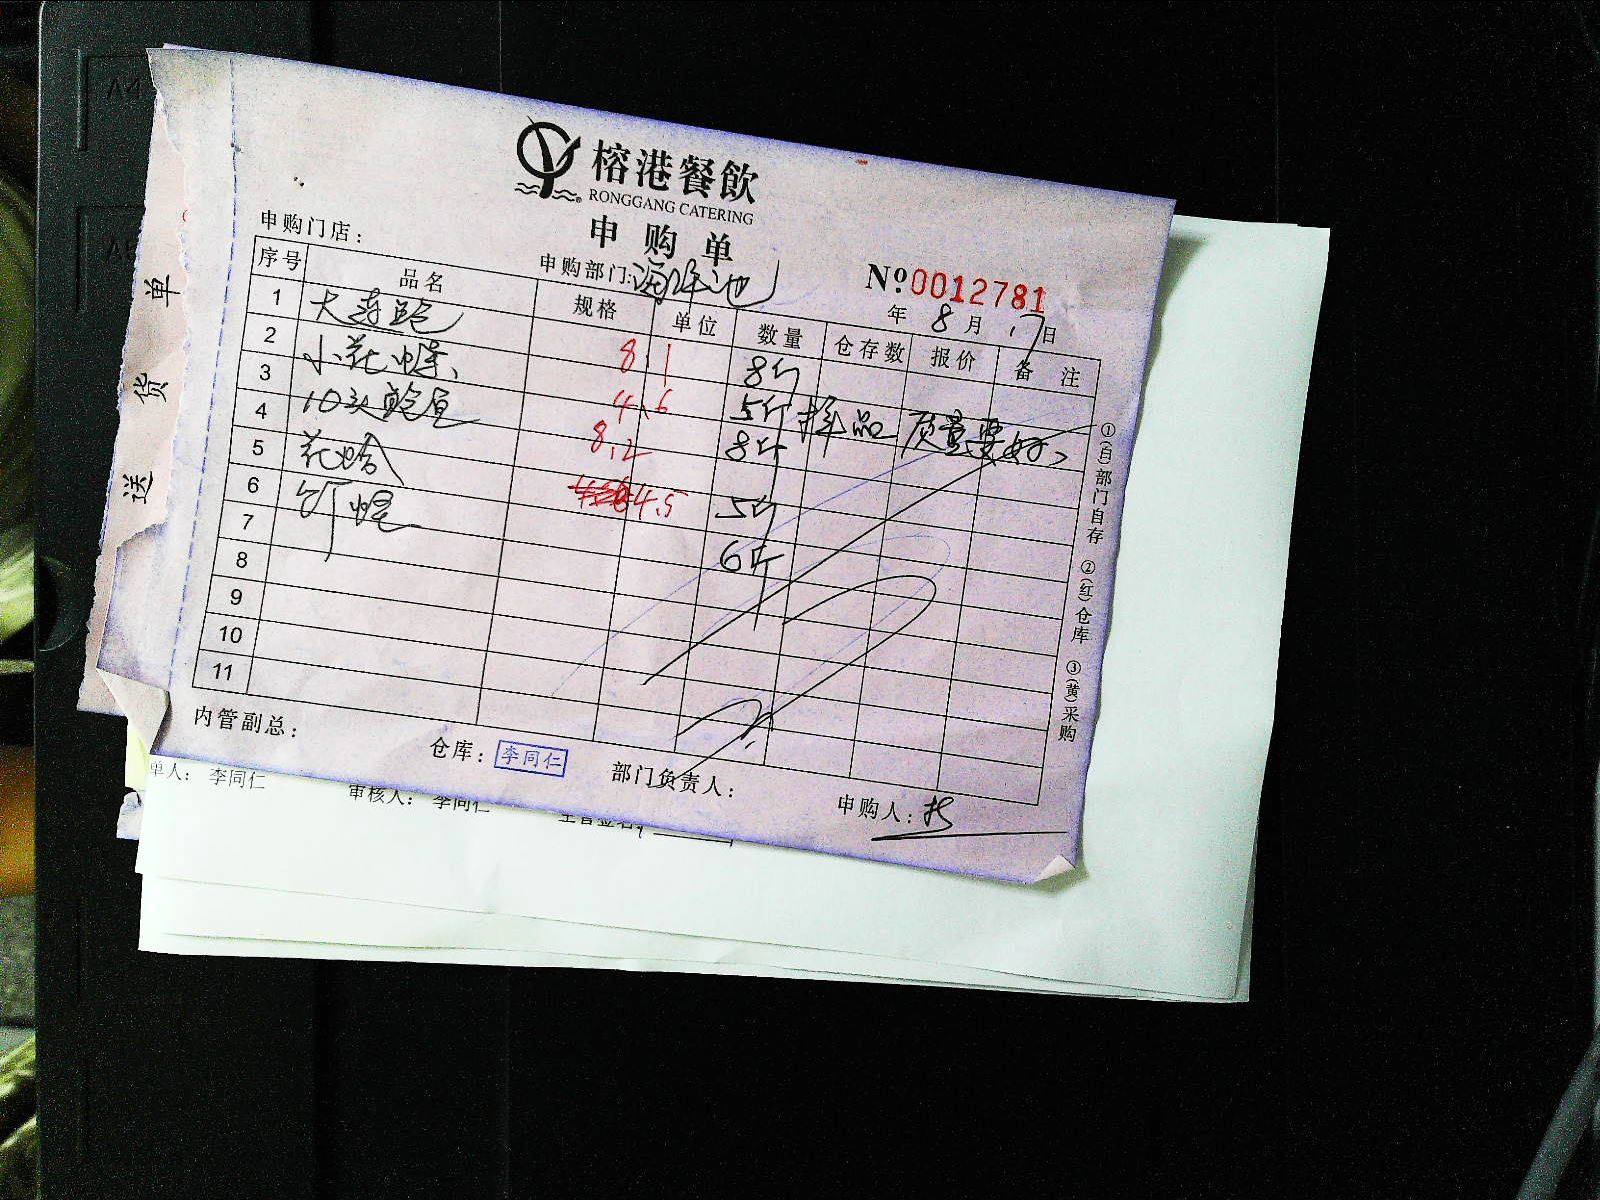 榕港餐飲
RONGGANG CATERING
申购单
申购门店：
申购部门：海鲜池
№0012781
年 8 月 17 日
序号 品名 规格 单位 数量 仓存数 报价 备注
1 大连鲍 8.1 8斤
2 小花螺 4.6 5斤 样品 质量要好
3 10头鲍鱼 8.2 8斤
4 花蛤 4.5 5斤
5 6斤
6
7
8
9
10
11
①(白)部门自存 ②(红)仓库 ③(黄)采购
内管副总：
仓库：李同仁
部门负责人：
申购人：
送货单
单人： 李同仁
审核人： 李同仁